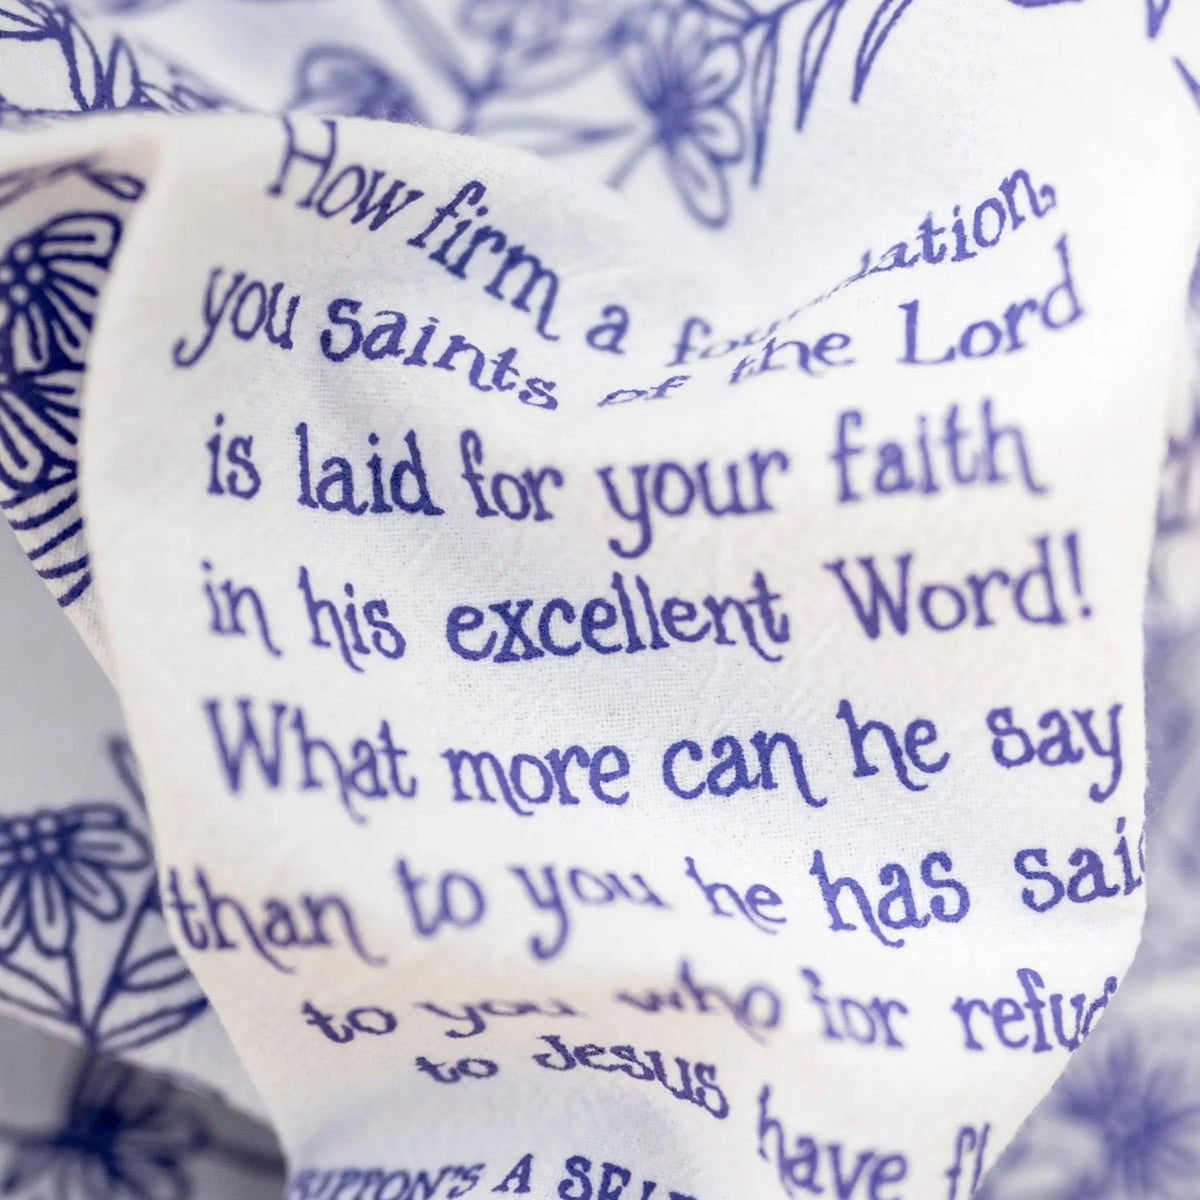 How firm a foundation,
you saints of the Lord
is laid for your faith
in his excellent Word!
What more can he say
than to you he has said
to you who for refug
to Jesus have fl
RIPPON'S A SEL